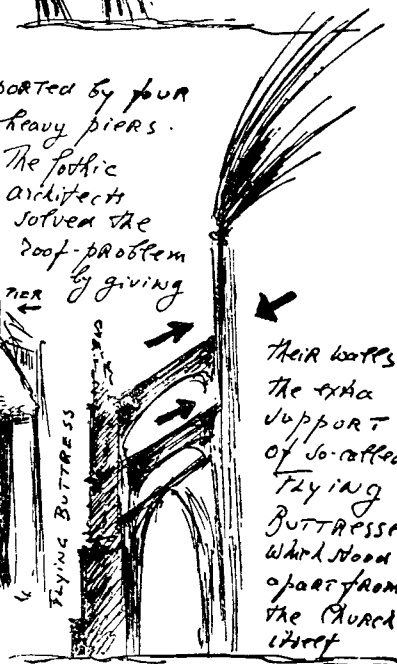 ported by four
heavy piers.
The Gothic
architects
solved the
roof-problem
by giving
PIER
FLYING BUTTRESS
their walls
the extra
support
of so-called
Flying
Buttresse
which stood
apart from
the Church
itself